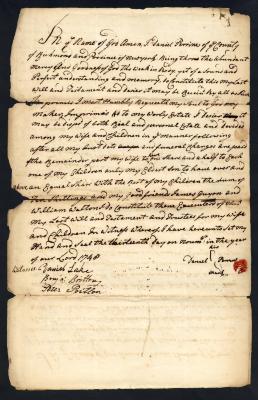 In ye Name of God Amen I Daniel Perrine of ye County
of Richmond and Province of Newyork Being throu the abundant
mercy & Goodness of God tho Weak in Body yet of a Sound and
Perfect understanding and memory to Constitute this my Last
Will and Testament and Desire it may be Received by all as Such
Imprimis I most Humbly Bequeath my Soul to God my
Maker Imprimis as to my Worly Estate I Desire that it
may be Disposd of both Real and personal Estate and Devided
among my Wife and Children in ye Manner following
after all my Just debts and funeral Charges are paid
of the Remainder part my Wife to have Share and a half to Each
one of my Children only my Eldest Son to have over and
above an Equal Share with the Rest of my Children the sum of
Shillings and my Good friends James Guyon and
William Walton do Constitute these Executors of this
My Last Will and Testament and Trustees for my Wife
and Children In Witness Whereof I have hereunto Set my
Hand and Seal the thirteenth day on Novmr in the year
of our Lord 1748
his
Daniel Perrine
mark
Witnesses Daniel Lake